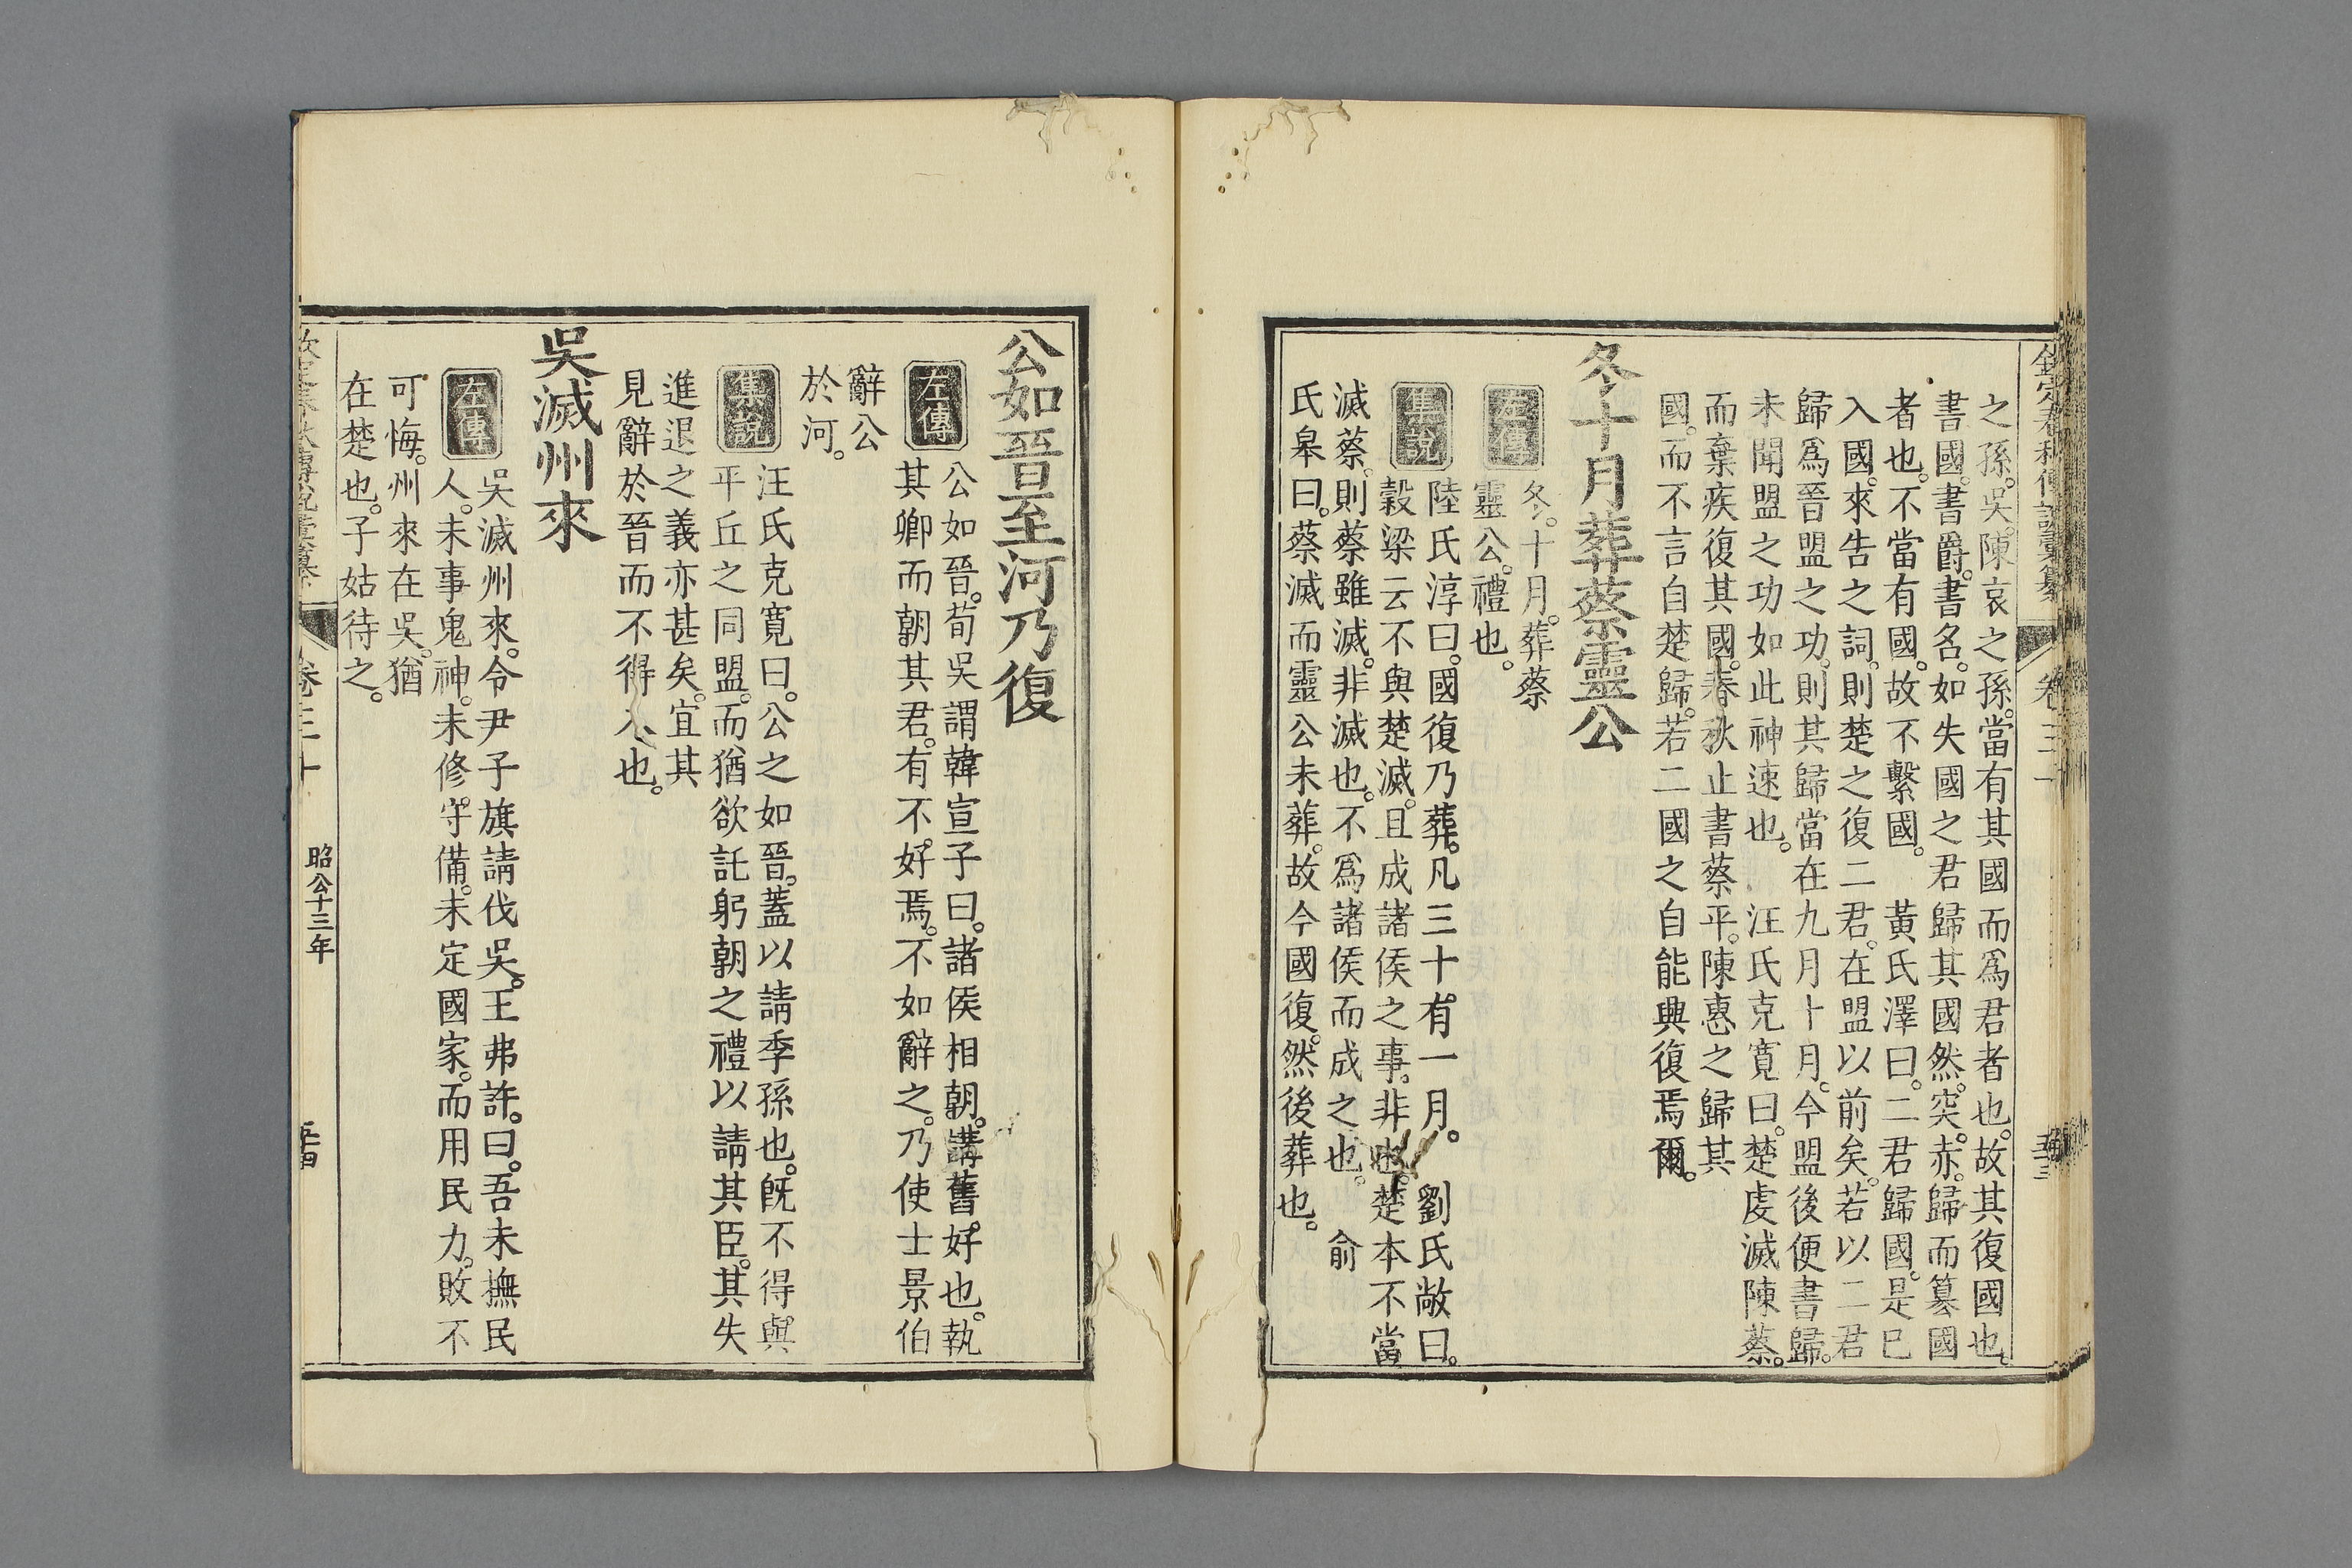 欽定春秋傳說彙纂 卷三十 五十三
之孫。吳。陳哀之孫。當有其國而爲君者也。故其復國也。
書國。書爵。書名。如失國之君歸其國然。突。赤。歸而篡國
者也。不當有國。故不繫國。 黃氏澤曰。二君歸國。是已
入國。來告之詞。則楚之復二君。在盟以前矣。若以二君
歸爲晉盟之功。則其歸當在九月十月。今盟後便書歸。
未聞盟之功如此神速也。 汪氏克寬曰。楚虔滅陳蔡。
而棄疾復其國。春秋止書蔡平。陳惠之歸其
國。而不言自楚歸。若二國之自能興復焉爾。
冬十月葬蔡靈公
左傳
冬。十月。葬蔡
靈公。禮也。
集說
陸氏淳曰。國復乃葬。凡三十有一月。 劉氏敞曰。
穀梁云不與楚滅。且成諸侯之事。非也。楚本不當
滅蔡。則蔡雖滅。非滅也。不爲諸侯而成之也。 俞
氏皋曰。蔡滅而靈公未葬。故今國復。然後葬也。
公如晉至河乃復
左傳
公如晉。荀吳謂韓宣子曰。諸侯相朝。講舊好也。執
其卿而朝其君。有不好焉。不如辭之。乃使士景伯
辭公
於河。
集說
汪氏克寬曰。公之如晉。蓋以請季孫也。旣不得與
平丘之同盟。而猶欲託躬朝之禮以請其臣。其失
進退之義亦甚矣。宜其
見辭於晉而不得入也。
吳滅州來
左傳
吳滅州來。令尹子旗請伐吳。王弗許。曰。吾未撫民
人。未事鬼神。未修守備。未定國家。而用民力。敗不
可悔。州來在吳。猶
在楚也。子姑待之。
卷三十 昭公十三年